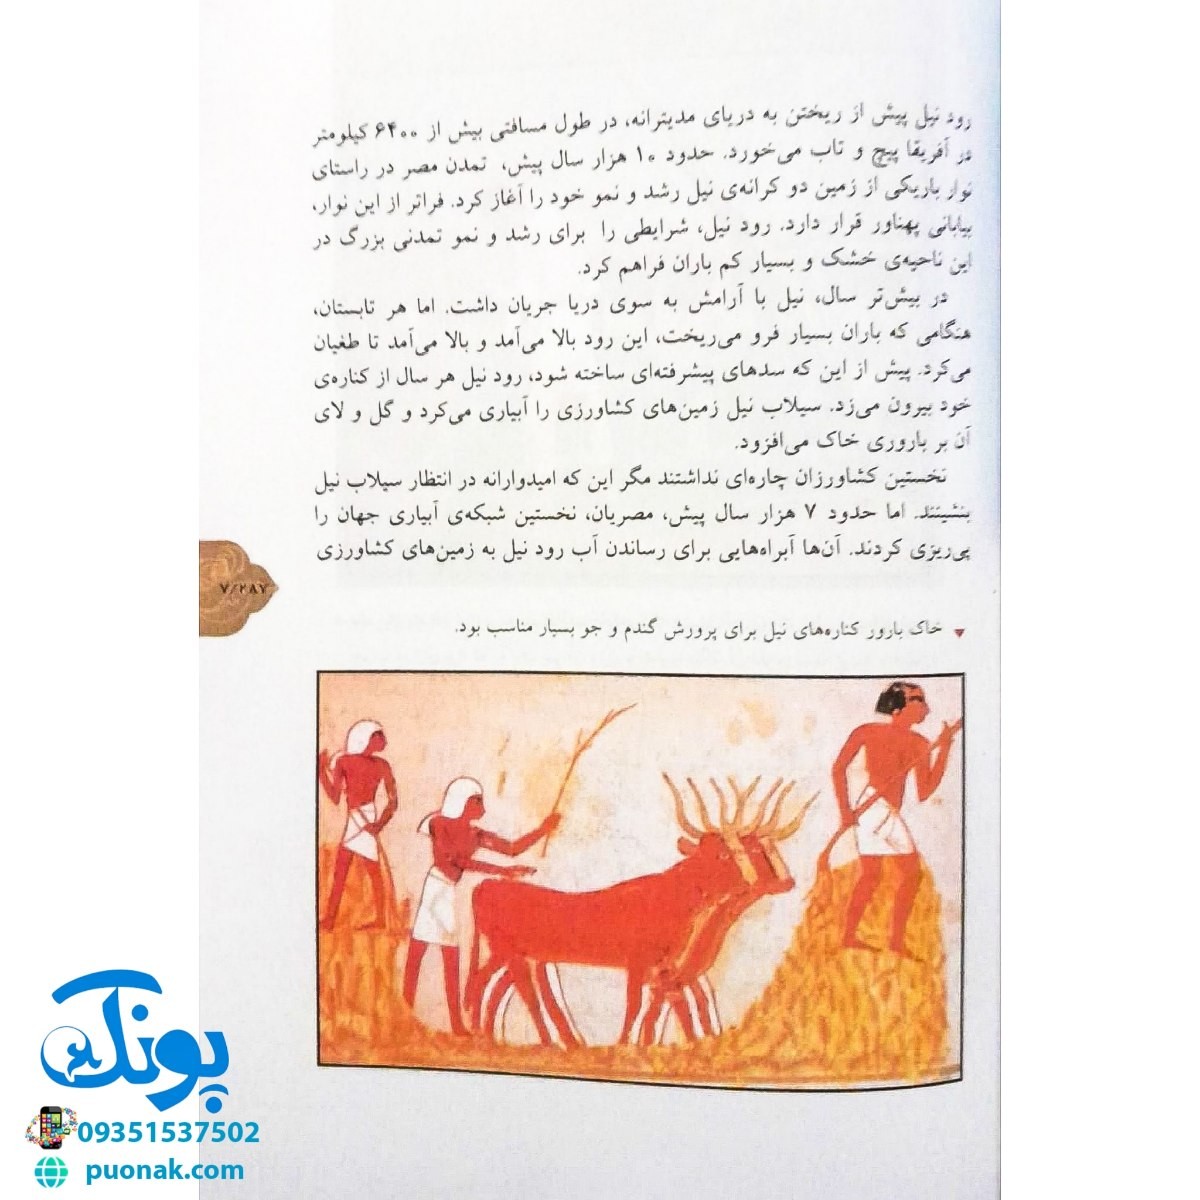 رود نیل پیش از ریختن به دریای مدیترانه، در طول مسافتی بیش از ۶۴۰۰ کیلومتر
در آفریقا پیچ و تاب می‌خورد. حدود ۱۰ هزار سال پیش، تمدن مصر در راستای
نوار باریکی از زمین دو کرانه‌ی نیل رشد و نمو خود را آغاز کرد. فراتر از این نوار،
بیابانی پهناور قرار دارد. رود نیل، شرایطی را برای رشد و نمو تمدنی بزرگ در
این ناحیه‌ی خشک و بسیار کم باران فراهم کرد.
در بیش‌تر سال، نیل با آرامش به سوی دریا جریان داشت. اما هر تابستان،
هنگامی که باران بسیار فرو می‌ریخت، این رود بالا می‌آمد و بالا می‌آمد تا طغیان
می‌کرد. پیش از این که سدهای پیشرفته‌ای ساخته شود، رود نیل هر سال از کناره‌ی
خود بیرون می‌زد. سیلاب نیل زمین‌های کشاورزی را آبیاری می‌کرد و گل و لای
آن بر باروری خاک می‌افزود.
نخستین کشاورزان چاره‌ای نداشتند مگر این که امیدوارانه در انتظار سیلاب نیل
بنشینند. اما حدود ۷ هزار سال پیش، مصریان، نخستین شبکه‌ی آبیاری جهان را
پی‌ریزی کردند. آن‌ها آبراه‌هایی برای رساندن آب رود نیل به زمین‌های کشاورزی
۷/۲۸۷
خاک بارور کناره‌های نیل برای پرورش گندم و جو بسیار مناسب بود.
پونک
09351537502
puonak.com